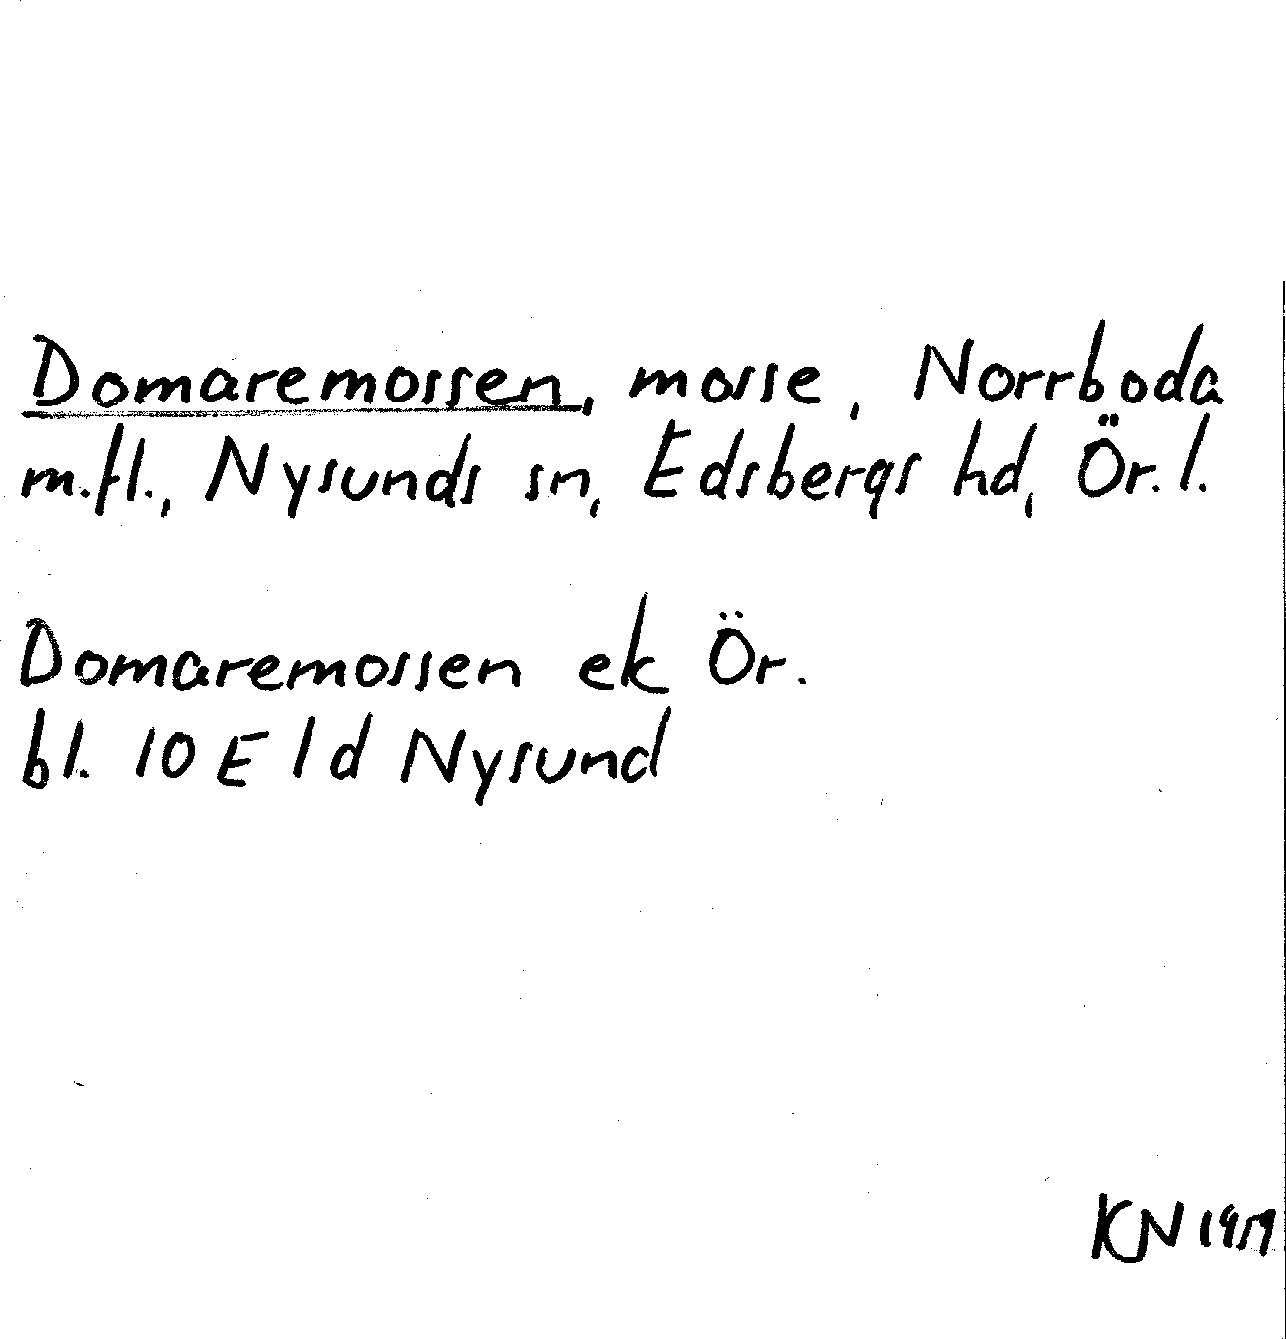 Domaremossen, mosse, Norrboda
m.fl., Nysunds sn, Edsbergs hd, Ör. l.
Domaremossen ek Ör.
bl. 10 E 1d Nysund
KN 1959